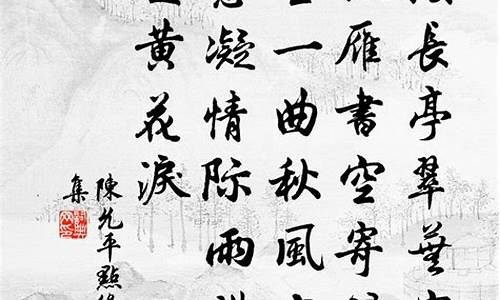 長亭翠蕪
雁書空寄
一曲秋風
凝情際雨
黃花淚
陳允平點絳
集